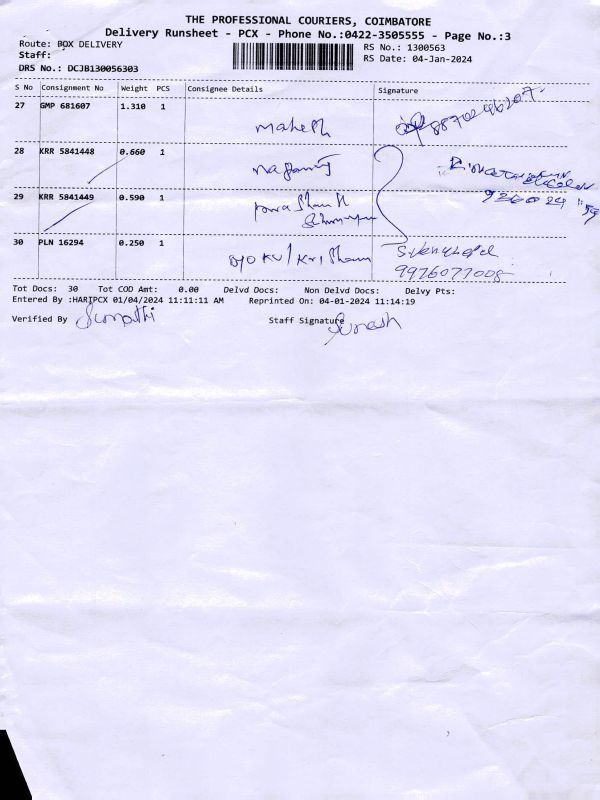 THE PROFESSIONAL COURIERS, COIMBATORE
Delivery Runsheet - PCX - Phone No.:0422-3505555 - Page No.:3
Route: BOX DELIVERY RS No.: 1300563
Staff: RS Date: 04-Jan-2024
DRS No.: DCJB130056303
S No Consignment No Weight PCS Consignee Details Signature
27 GMP 681607 1.310 1
Mahesh
28 KRR 5841448 0.660 1
29 KRR 5841449 0.590 1
30 PLN 16294 0.250 1
9976077008
Tot Docs: 30 Tot COD Amt: 0.00 Delvd Docs: Non Delvd Docs: Delvy Pts:
Entered By :HARIPCX 01/04/2024 11:11:11 AM Reprinted On: 04-01-2024 11:14:19
Verified By Sumathi Staff Signature Suresh